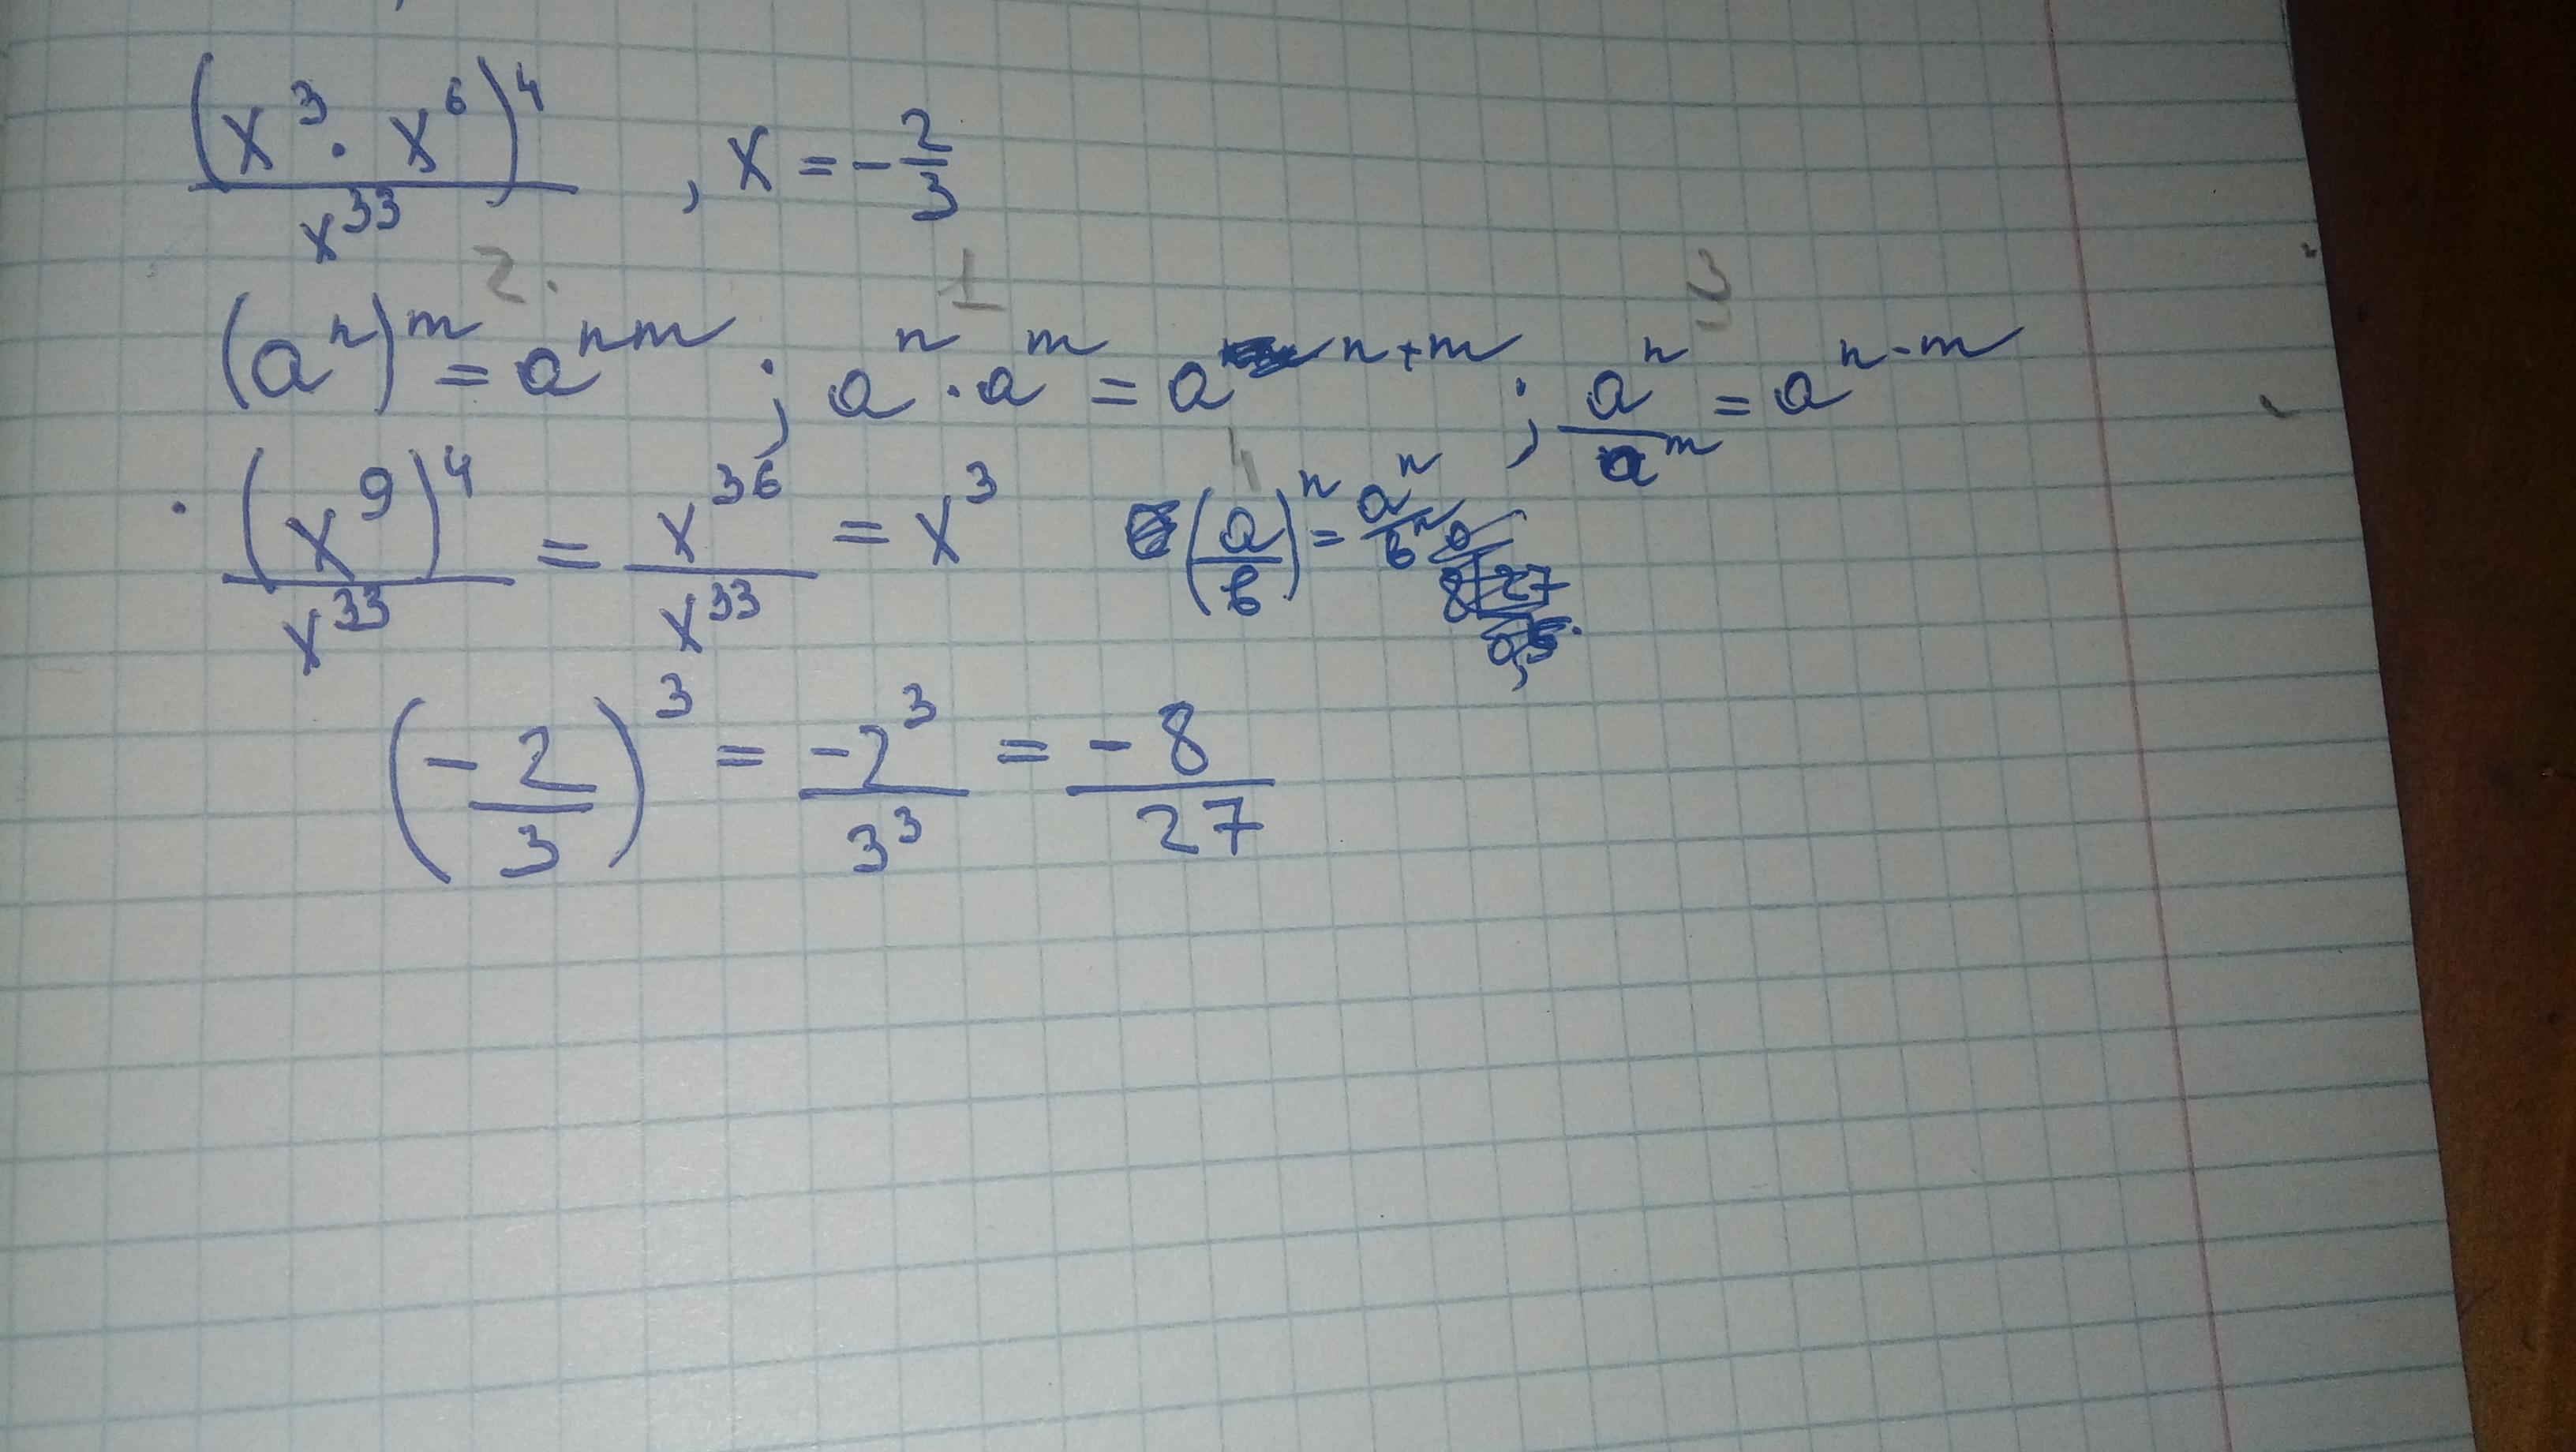 (x³ · x⁶)⁴ / x³³ , x = -2/3
2. 1 3
(aⁿ)ᵐ = aⁿᵐ ; aⁿ · aᵐ = aⁿ⁺ᵐ ; aⁿ/aᵐ = aⁿ⁻ᵐ
4
(x⁹)⁴ / x³³ = x³⁶ / x³³ = x³ (a/b)ⁿ = aⁿ/bⁿ
(-2/3)³ = -2³/3³ = -8/27